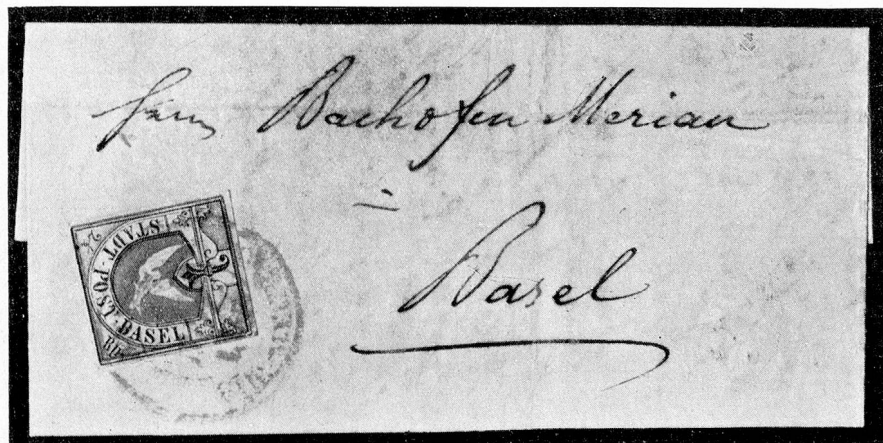 Herrn Bachofen Merian
Basel
STADT-POST-BASEL
2½
Rp.